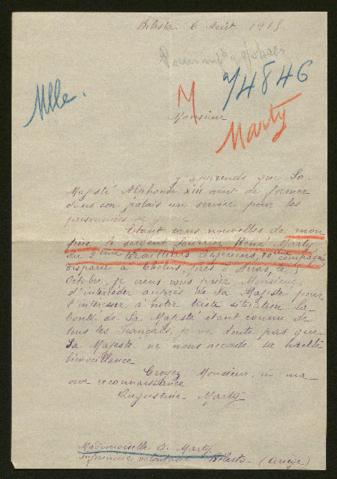 Bélesta 6 Août 1915
Mlle.
M
74846
Marty
Monsieur
J'apprends que Sa
Majesté Alphonse XIII vient de former
dans son palais un service pour les
prisonniers de guerre
Etant sans nouvelles de mon
frère le sergent fourrier Henri Marty
du 2ème tirailleurs algériens, compagnie
disparu à près d'Arras, le
Octobre, je viens vous prier Monsieur
d'intercéder auprès de Sa Majesté pour
l'intéresser à notre triste situation. La
bonté de Sa Majesté étant connue de
tous les Français, je ne doute pas que
Sa Majesté ne nous accorde sa haute
bienveillance
Croyez Monsieur, à ma
reconnaissance
Augustine Marty
Mademoiselle A. Marty
infirmière volontaire Bélesta (Ariège)